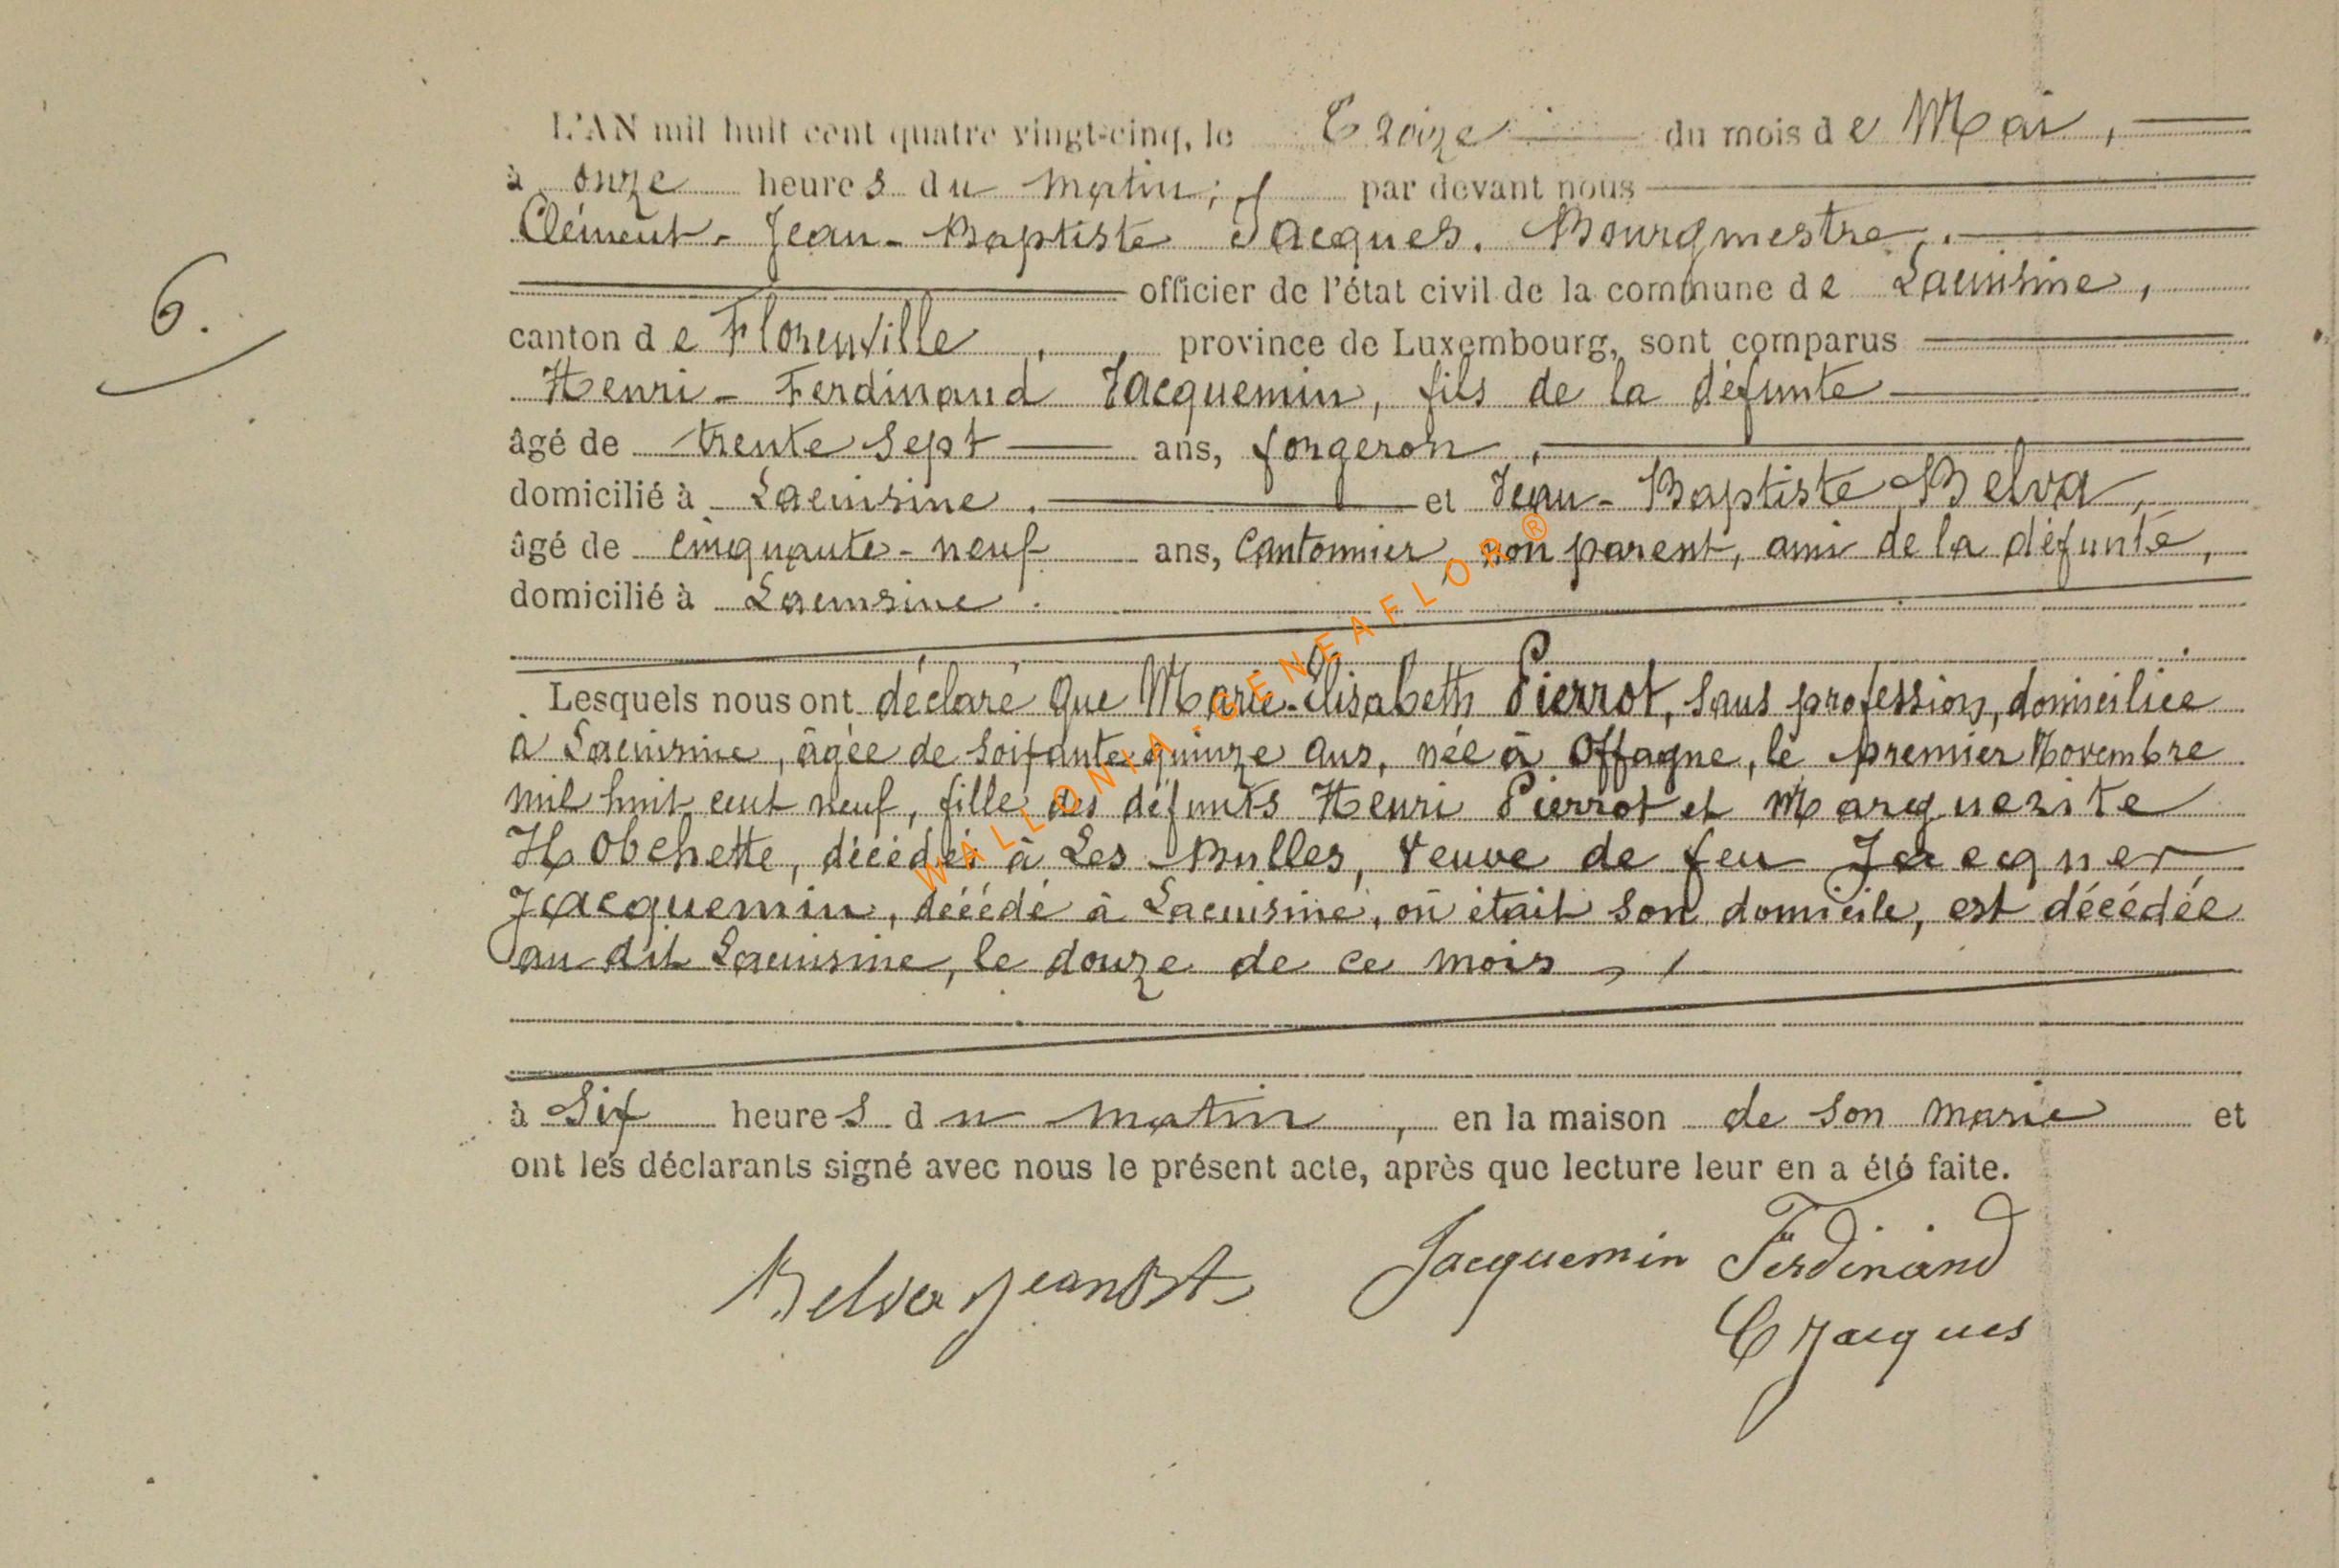 L'AN mil huit cent quatre vingt-cinq, le Treize du mois de Mai,
à onze heures du matin; par devant nous
Clément-Jean-Baptiste Jacques. Bourgmestre,
officier de l'état civil de la commune de Lacuisine,
6.
canton de Florenville, province de Luxembourg, sont comparus
Henri-Ferdinand Jacquemin, fils de la défunte
âgé de trente sept ans, forgeron,
domicilié à Lacuisine. et Jean-Baptiste Belva,
âgé de cinquante-neuf ans, Cantonnier non parent, ami de la défunte,
domicilié à Lacuisine.
Lesquels nous ont déclaré que Marie-Élisabeth Pierrot, sans profession, domiciliée
à Lacuisine, âgée de soixante quinze ans, née à Offagne, le premier Novembre
mil huit cent neuf, fille des défunts Henri Pierrot et Marguerite
Hobchette, décédés à Les Bulles, Veuve de feu Jacques
Jacquemin, décédé à Lacuisine, où était son domicile, est décédée
au dit Lacuisine, le douze de ce mois,
à Six heures du matin, en la maison de son marie et
ont les déclarants signé avec nous le présent acte, après que lecture leur en a été faite.
Belva Jean Bt Jacquemin Ferdinand
C Jacques
WALLONIA-GENEAFLOR®